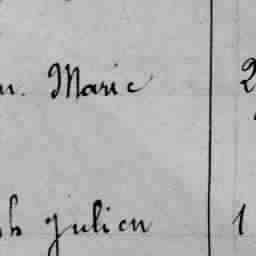 n. Marie 2
ph Julien 1